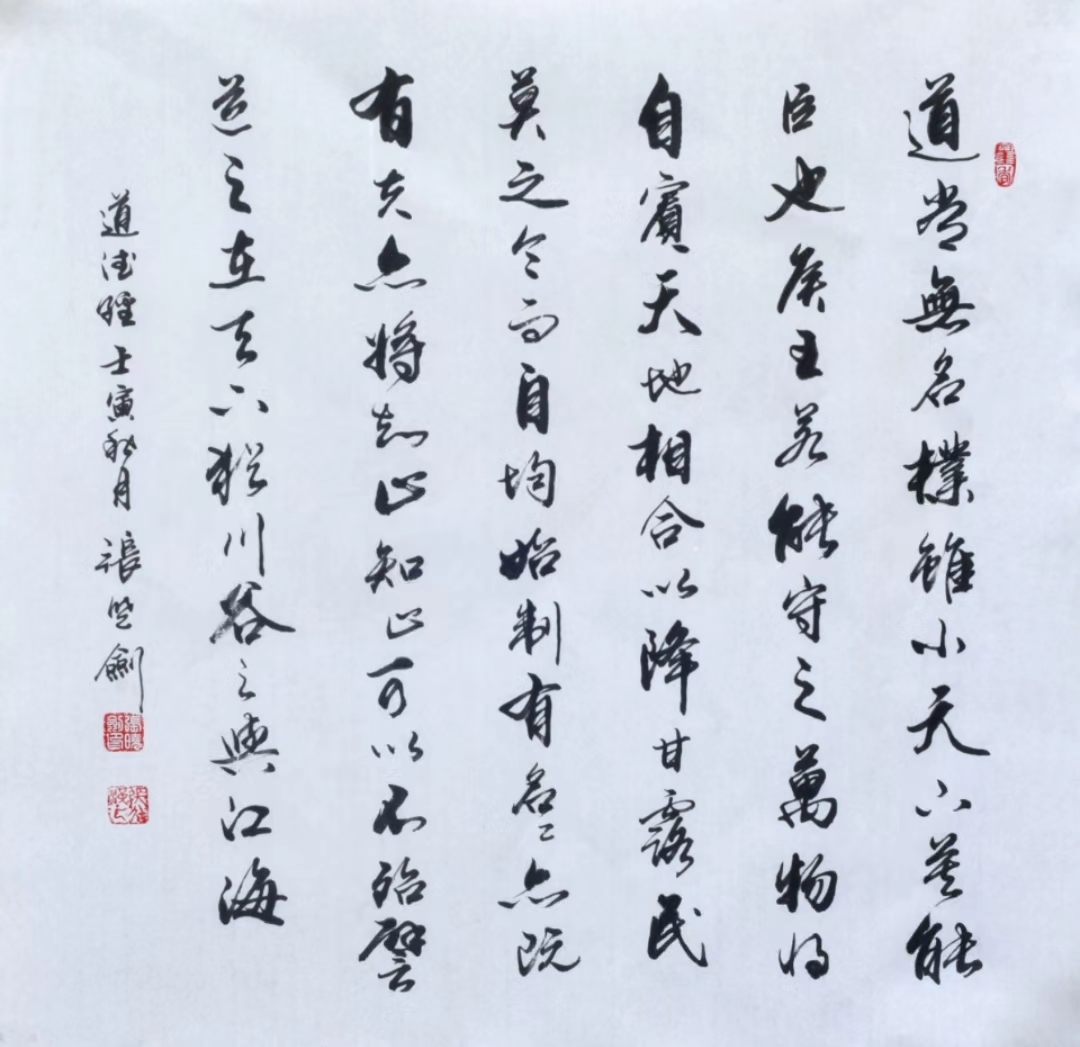 道常無名樸雖小天下莫能
臣也侯王若能守之萬物將
自賓天地相合以降甘露民
莫之令而自均始制有名〻亦既
有夫亦將知止知止可以不殆譬
道之在天下猶川谷之與江海
道德經 壬寅秋月 張 劍